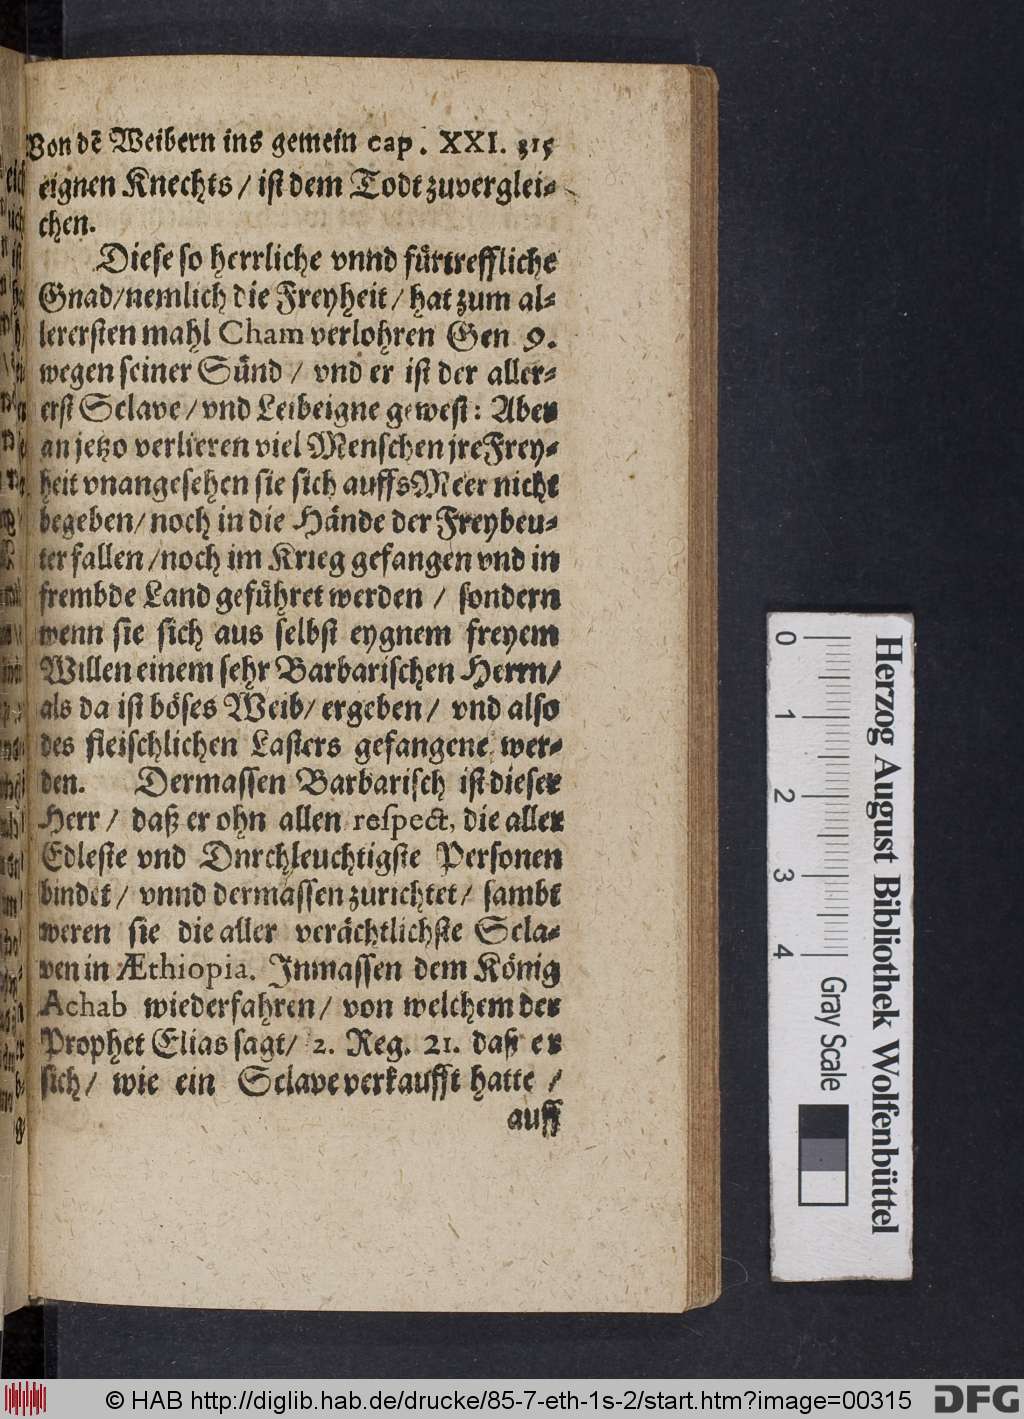 Von dē Weibern ins gemein cap. XXI. 315
eignen Knechts / ist dem Todt zuverglei=
chen.
Diese so herrliche vnnd fürtreffliche
Gnad/nemlich die Freyheit / hat zum al=
lerersten mahl Cham verlohren Gen 9.
wegen seiner Sünd / vnd er ist der aller=
erst Sclave / vnd Leibeigne gewest: Aber
an jetzo verlieren viel Menschen jre Frey=
heit vnangesehen sie sich auffs Meer nicht
begeben/ noch in die Hände der Freybeu=
ter fallen /noch im Krieg gefangen vnd in
frembde Land geführet werden / sondern
wenn sie sich aus selbst eygnem freyem
Willen einem sehr Barbarischen Herrn/
als da ist böses Weib/ ergeben/ vnd also
des fleischlichen Lasters gefangene wer=
den. Dermassen Barbarisch ist dieser
Herr / daß er ohn allen respect, die aller
Edleste vnd Dnrchleuchtigste Personen
bindet / vnnd dermassen zurichtet/ sambt
weren sie die aller verächtlichste Scla=
ven in Æthiopia. Inmassen dem König
Achab wiederfahren/ von welchem der
Prophet Elias sagt/ 2. Reg. 21. daß er
sich/ wie ein Sclave verkaufft hatte /
auff
0 1 2 3 4
Gray Scale
Herzog August Bibliothek Wolfenbüttel
© HAB http://diglib.hab.de/drucke/85-7-eth-1s-2/start.htm?image=00315
DFG